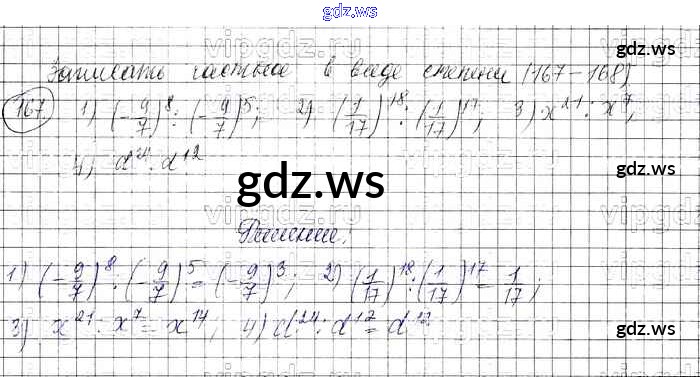 gdz.ws
Записать частное в виде степени (167-168)
gdz.ws
167 1) (-9/7)^8 : (-9/7)^5; 2) (1/17)^18 : (1/17)^17; 3) x^21 : x^7;
4) d^24 : d^12
gdz.ws
gdz.ws
Решение:
1) (-9/7)^8 : (-9/7)^5 = (-9/7)^3; 2) (1/17)^18 : (1/17)^17 = 1/17;
3) x^21 : x^7 = x^14; 4) d^24 : d^12 = d^12
gdz.ws